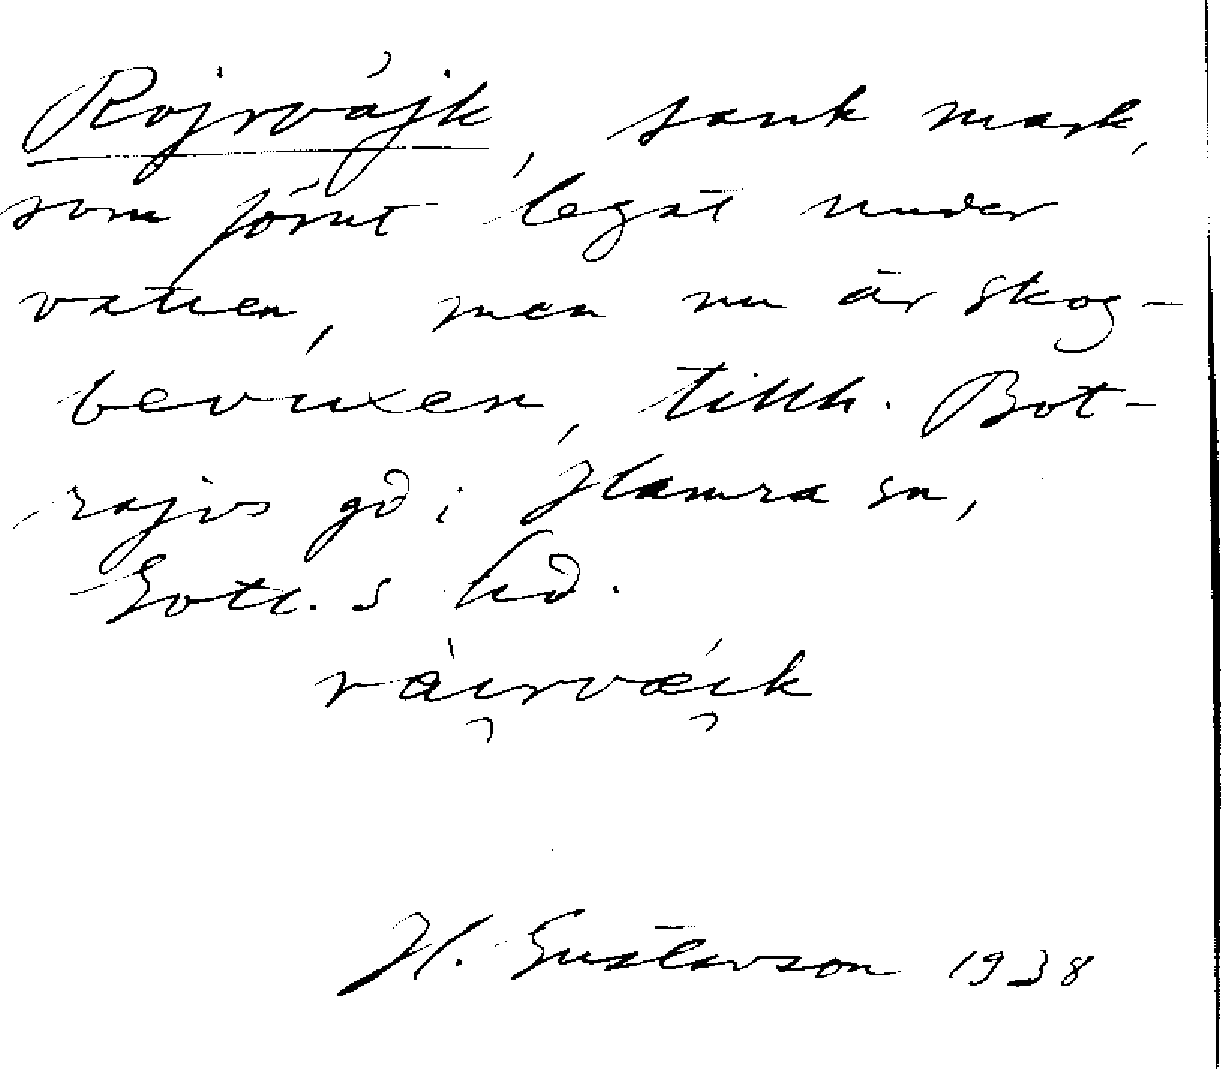 Rojrvájk, sank mark,
som förut legat under
vatten, men nu är skog-
bevuxen, tillh. Bot-
rajvs gd i Hamra sn,
Gotl. s hd.
ràirvǽik
H. Gustavson 1938